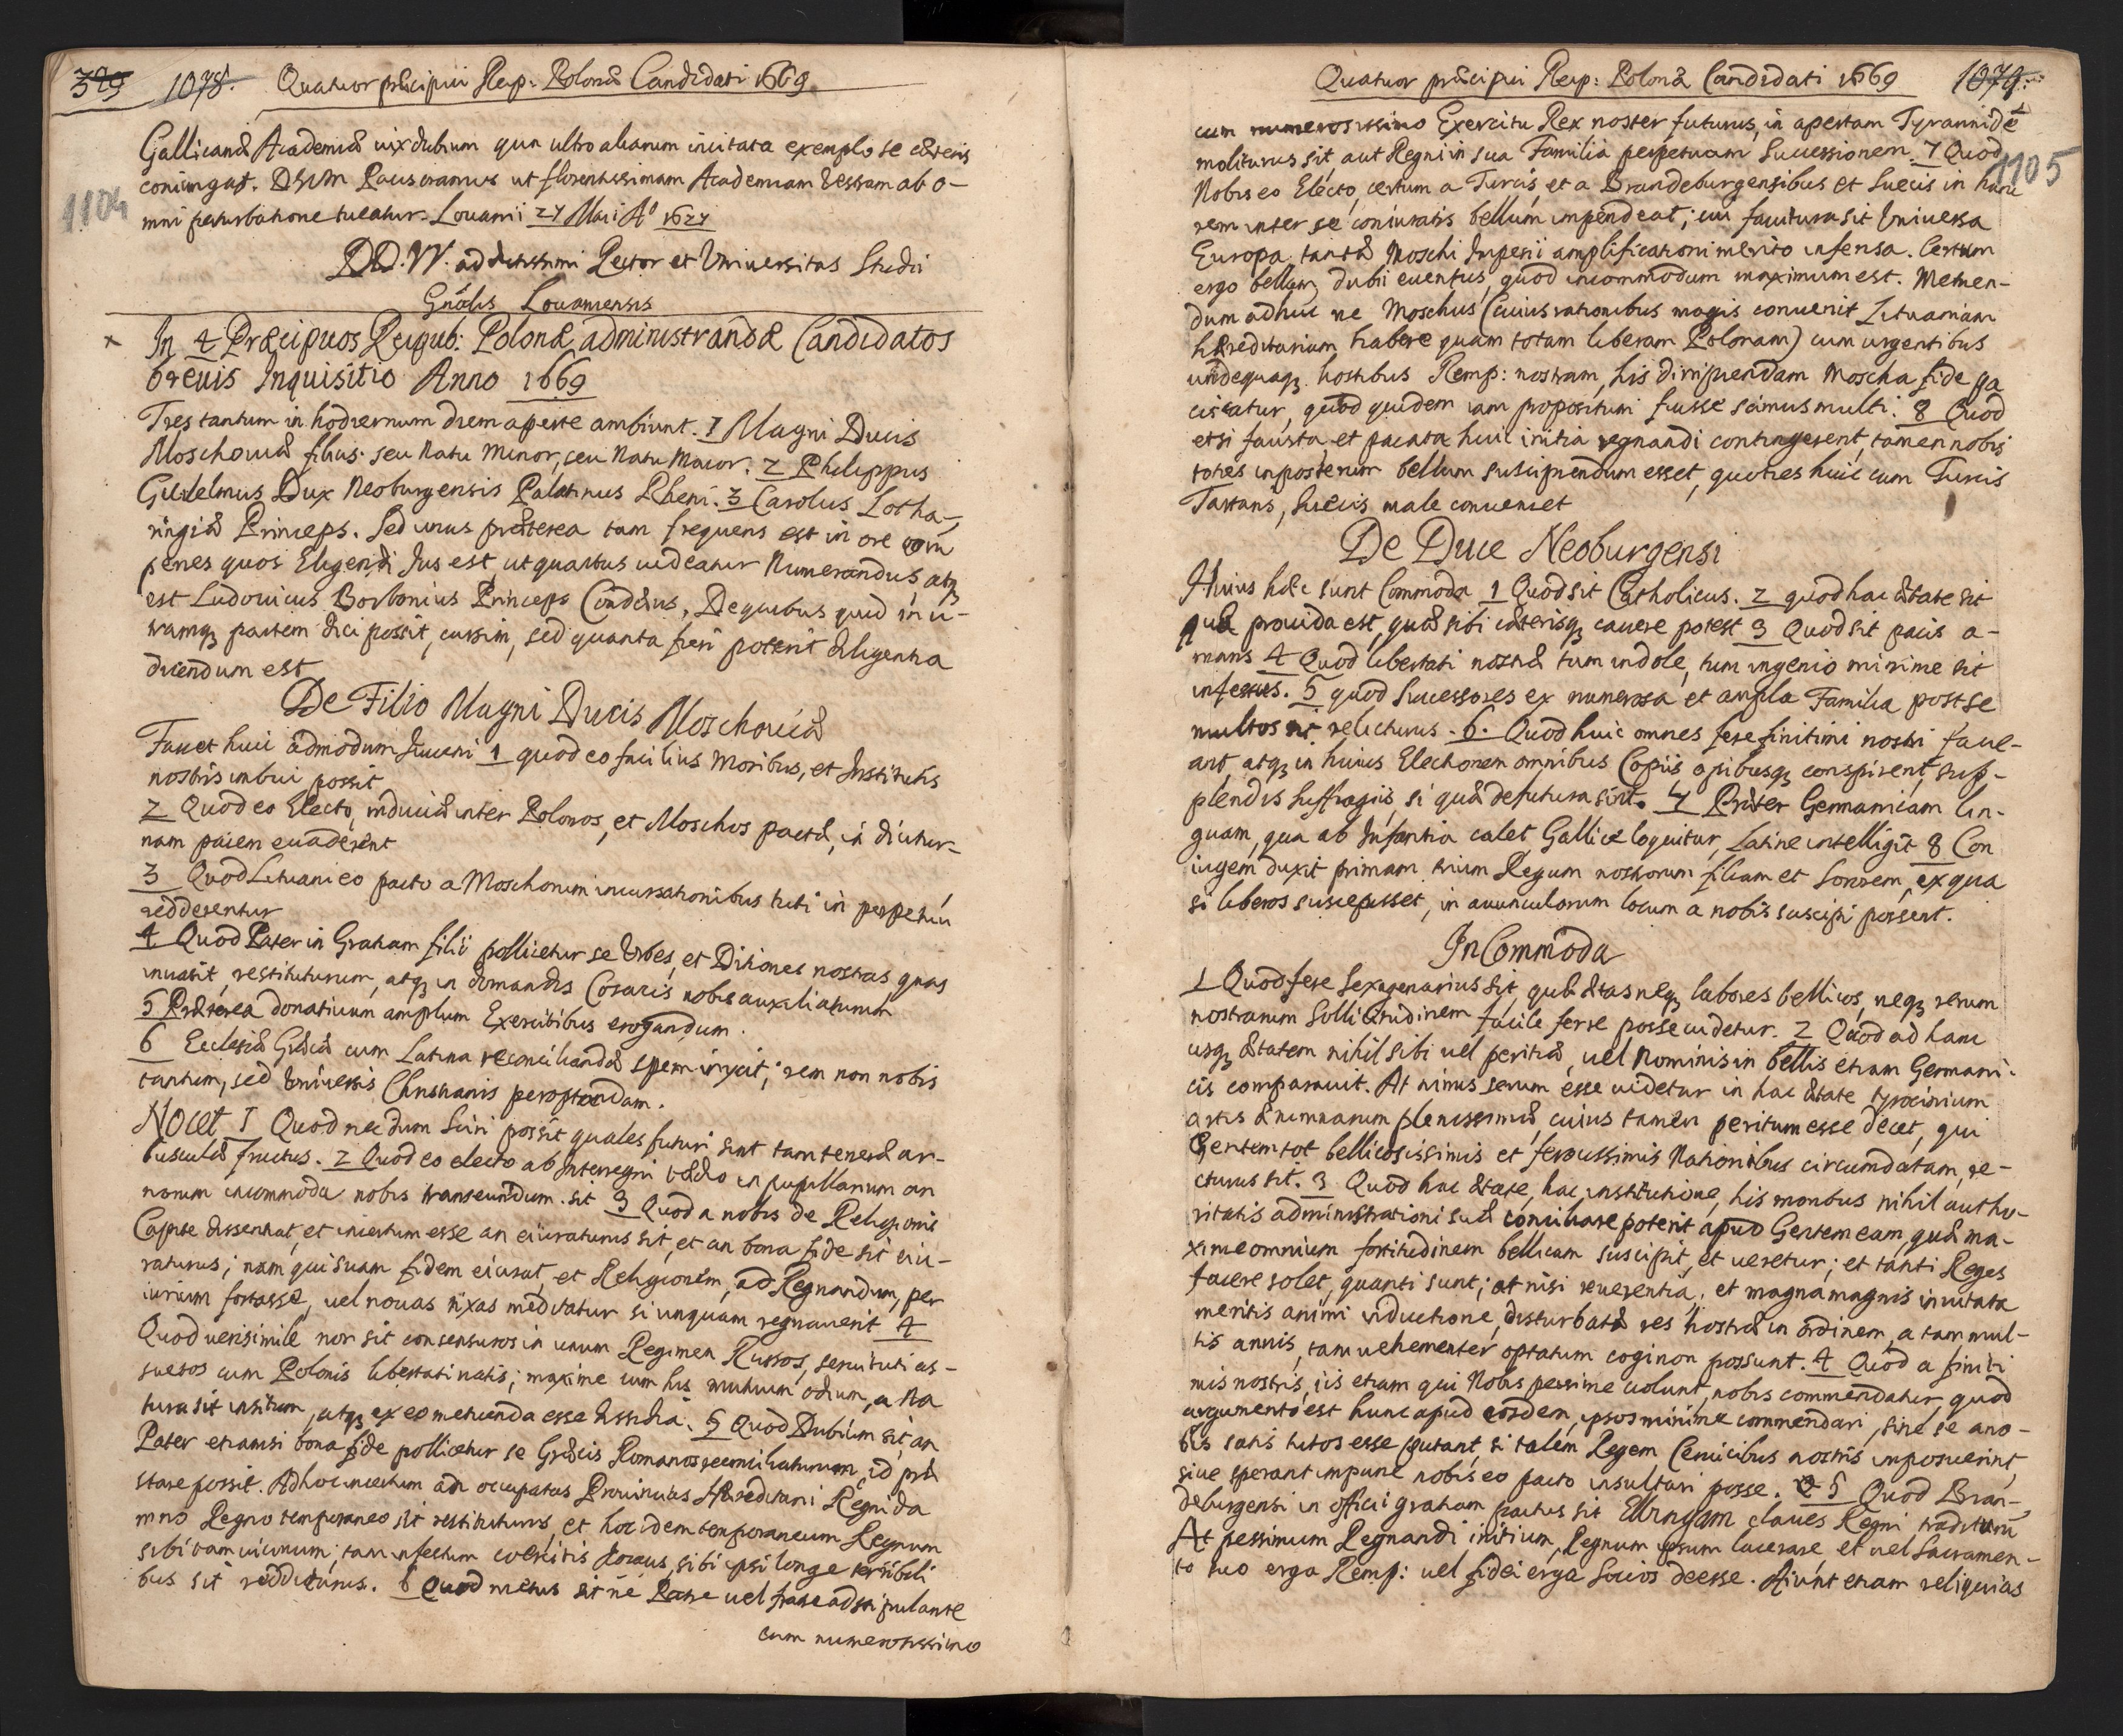 329 1078. Quatuor præcipui Reip: Polonæ Candidati 1669
Gallicanæ Academiæ vix dubium quin ultro aliarum incitata exemplo se cæteris
coniungat. DEUM Deus oramus ut florentissimam Academiam Vestram ab o-
1104
mni perturbatione tueatur. Lovanii 27 Maii Aº 1627
DD. VV. addictissimi Rector et Universitas Studii
Gnãlis Lovaniensis
x In 4 Præcipuos Reipub: Polonæ administrandæ Candidatos
brevis Inquisitio Anno 1669
Tres tantum in hodiernum diem aperte ambiunt. 1 Magni Ducis
Moschoviæ filius. seu Natu Minor, seu Natu Maior. 2 Philippus
Guilelmus Dux Neoburgensis Palatinus Rheni. 3 Carolus Lotha-
ringiæ Princeps. Sed unus præterea tam frequens est in ore eorũ
penes quos Eligendi Jus est ut quartus videatur Numerandus, atq
est Ludovicus Borbonius Princeps Condæus. De quibus quid in u-
tramq partem dici possit, cursim, sed quanta fieri poterit diligentia
dicendum est
De Filio Magni Ducis Moschoviæ
Favet huic admodum Iuveni 1 quod eo facilius Moribus, et Institutis
nostris imbui possit
2 Quod eo Electo, induciæ inter Polonos, et Moschos pactæ, in diutur-
nam pacem evaderent
3 Quod Lituani eo pacto a Moschorum incursationibus tuti in perpetuũ
redderentur
4 Quod Pater in Gratiam filii pollicetur se Urbes, et Ditiones nostras quas
invasit, restituturum, atq in domandis Cosacis nobis auxiliaturum
5 Præterea donativum amplum Exercitibus erogandum.
6 Ecclesiæ Græcæ cum Latina reconciliandæ spem iniicit; rem non nobis
tantum, sed Universis Christianis peroptandam.
Nocet 1 Quod necdum Sciri possit quales futuri sint tam teneræ ar-
busculæ fructus. 2 Quod eo electo ab Interregni tædio in pupillarum an
norum incommoda nobis transeundum sit 3 Quod a nobis de Religionis
Capite dissentiat, et incertum esse an eiuraturus sit, et an bona fide sit eiu-
raturus; nam qui suam fidem eiurat, et Religionem, ad Regnandum, per
iurium fortasse, vel novas rixas meditatur si unquam regnaverit 4
Quod verisimile non sit consensuros in unum Regimen Russos, servituti as-
suetos cum Polonis libertati natis; maxime cum his mutuum odium, a Na
tura sit insitum, atq ex eo metuenda esse dissidia. 5 Quod Dubium sit, an
Pater etiamsi bona fide pollicetur se Græcis Romanos reconciliaturum, id præ
stare possit. Adhoc incertum an occupatas Provincias Hæreditarii Regni da
mno Regno temporaneo sit restituturus, et hoc idem temporaneum Regnum
sibi tam vicinum; tam infestum exercitis Cosacis, sibi ipsi longe terribili
bus sit redditurus. 6 Quod metus sit ne Patre vel fratre adstipulante
cum numerosissimo
Quatuor præcipui Reip: Polonæ Candidati 1669 1079.
cum numerosissimo Exercitu Rex noster futurus, in apertam Tyrannidẽ
moliturus sit, aut Regni in sua Familia perpetuam Successionem 7 Quod
1105
Nobis eo Electo, certum a Turcis et a Brandeburgensibus et Suecis in hanc
rem inter se coniuratis bellum impendeat; cui fauctura sit Universa
Europa, tantæ Moschi Imperii amplificationi merito infensa. Certum
ergo bellum, dubii eventus, quod incommodum maximum est. Metuen-
dum adhuc ne Moschus (Cuius rationibus magis convenit Lituaniam
hæreditariam habere quam totam liberam Poloniam) cum urgentibus
undequaq hostibus Remp: nostram, his diripiendam Moscha fide pa
ciscatur, quod quidem iam propositum fuisse scimus multi. 8 Quod
etsi fausta, et pacata huic initia regnandi contingerent, tamen nobis
toties in posterum bellum suscipiendum esset, quoties huic cum Turcis
Tartaris, Suecis male conveniet
De Duce Neoburgensi
Huius hæc sunt Commoda 1 Quod sit Catholicus. 2 quod hac ætate sit
quæ provida est, quæ sibi cæterisq cavere potest 3 Quod sit pacis a-
mans 4 Quod libertati nostræ tum indole, tum ingenio minime sit
infestus. 5 quod Successores ex numerosa et ampla Familia post se
multos sit relicturus. 6. Quod huic omnes fere finitimi nostri fave-
ant, atq in huius Electionem omnibus Copiis opibusq conspirent, sup-
plendis suffragiis, si quæ defutura sint. 7 Præter Germanicam lin-
guam, qua ab Infantia calet, Gallice loquitur, Latine intelligit 8 Con
iugem duxit primam trium Regum nostrorum filiam et Sororem, ex qua
si liberos suscepisset, in avunculorum locum a nobis suscipi possent.
InCommoda
1 Quod fere Sexagenarius sit, quæ ætas neq labores bellicos, neq rerum
nostrarum Sollicitudinem facile ferre posse videtur. 2 Quod ad hanc
usq ætatem nihil sibi vel peritiæ, vel Nominis in bellis etiam Germani-
cis comparavit. At nimis serum esse videtur in hac ætate tyrocinium
artis ærumnarum plenissimæ, cuius tamen peritum esse decet, qui
Gentem tot bellicosissimis et ferocissimis Nationibus circumdatam, re-
cturus sit. 3 Quod hac ætate, hac institutione, his moribus nihil autho-
ritatis administrationi suæ conciliare poterit apud Gentem eam, quæ ma-
xime omnium fortitudinem bellicam suscipit, et veretur; et tanti Reges
facere solet, quanti sunt; at nisi reverentia, et magna magnis invitata
meritis animi inductione, disturbatæ res nostræ in ordinem, a tam mul-
tis annis, tam vehementer optatum cogi non possunt. 4 Quod a finiti
mis nostris, iis etiam qui Nobis pessime volunt, nobis commendatur, quod
argumento est hunc apud eosdem, ipsos minime commendari, sive se a no-
bis satis tutos esse putant, si talem Regem Cervicibus nostris imposuerint,
sive sperant impune nobis eo pacto insultari posse. 5 Quod Bran-
deburgensi in officii gratiam pactus sit Elbingam claves Regni traditurũ
At pessimum Regnandi initium, Regnum ipsum lacerare, et vel Sacramen-
to suo erga Remp: vel fidei erga Socios deesse. Aiunt etiam reliquias